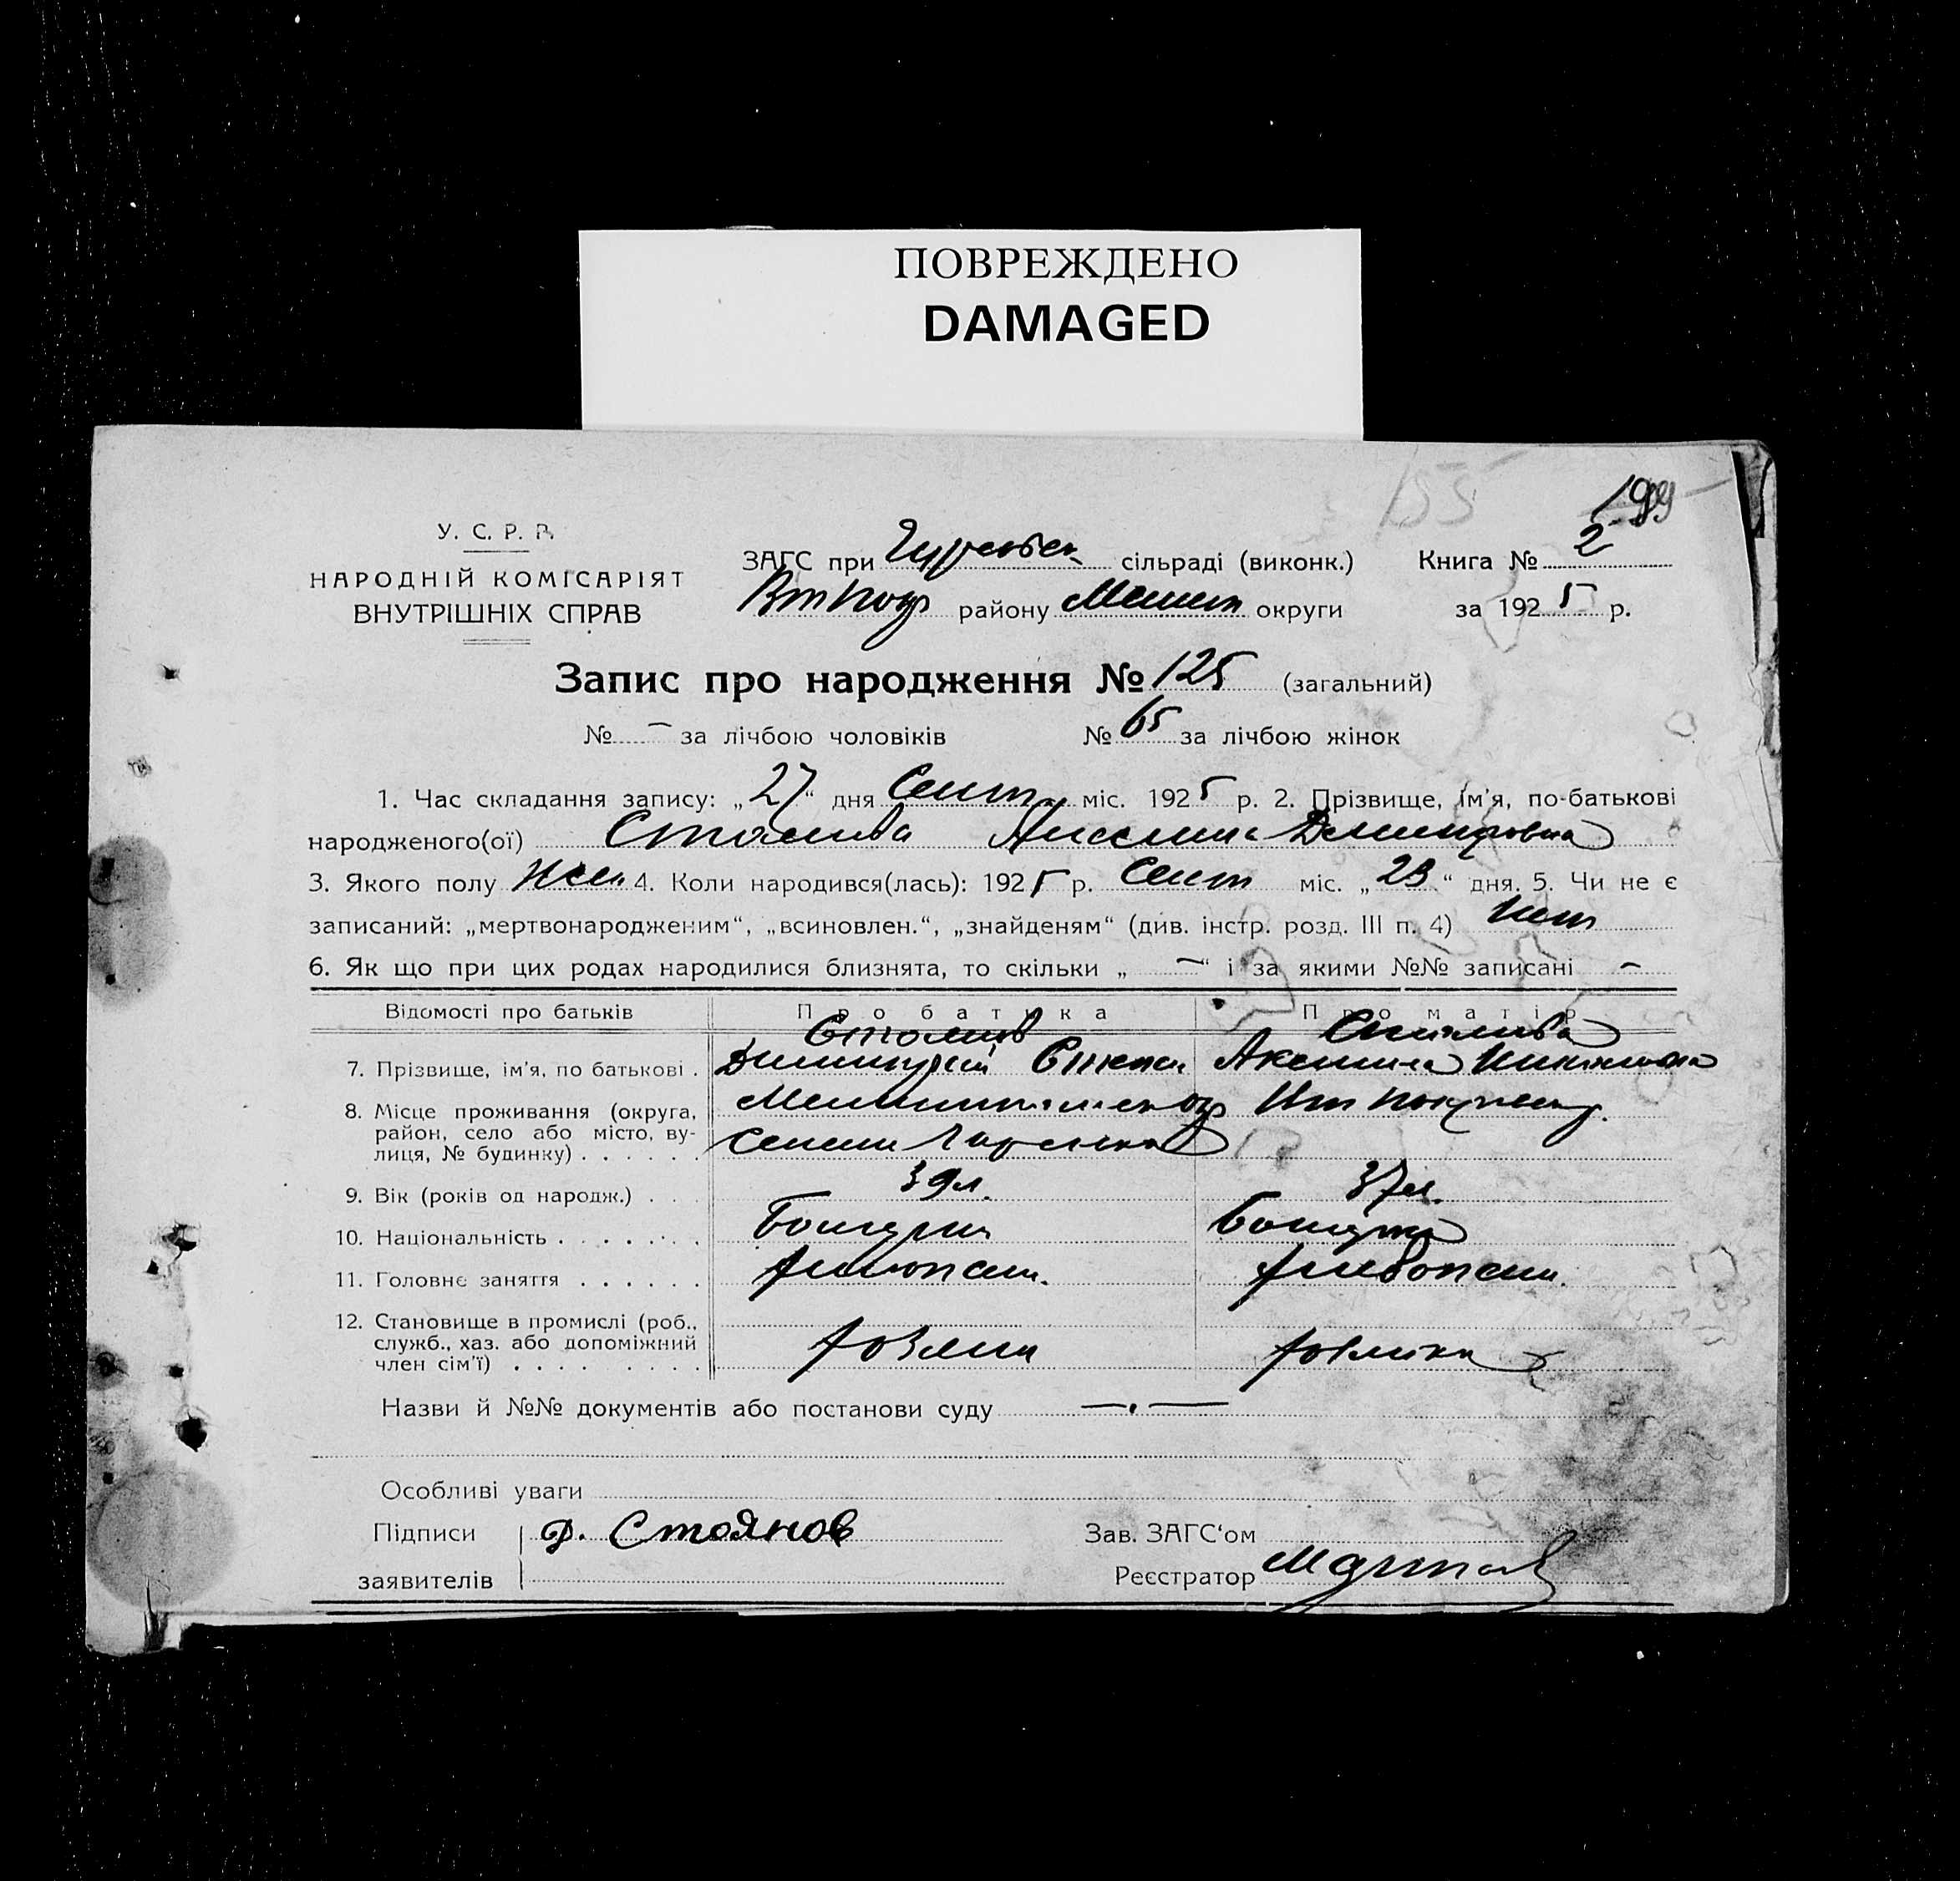 ПОВРЕЖДЕНО
DAMAGED
155
199
У. С. Р. Р.
НАРОДНІЙ КОМІСАРІЯТ
ВНУТРІШНІХ СПРАВ
ЗАГС при сільраді (виконк.) Книга № 2
району округи за 1925 р.
Запис про народження № 125 (загальний)
№ – за лічбою чоловіків № 65 за лічбою жінок
1. Час складання запису: „27“ дня Сент. міс. 1925 р. 2. Прізвище, ім'я, по-батькові
народженого(ої) Стоянова Дмитровна
3. Якого полу Жен. 4. Коли народився(лась): 1925 р. Сент міс. „23“ дня. 5. Чи не є
записаний: „мертвонародженим“, „всиновлен.“, „знайденям“ (див. інстр. розд. III п. 4) нет
6. Як що при цих родах народилися близнята, то скільки „ – “ і за якими №№ записані –
Відомості про батьків Про батька Про матір
Стоянов Стоянова
7. Прізвище, ім'я, по батькові . Димитрий Степан Аксиния
8. Місце проживання (округа,
район, село або місто, ву-
лиця, № будинку) . . . . . .
9. Вік (років од народж.) . . 39 л. 37 л.
10. Національність . . . . . . . Болгарин Болгарка
11. Головне заняття . . . . . . хлебопаш. хлебопаш.
12. Становище в промислі (роб.,
служб., хаз. або допоміжний
член сім'ї) . . . . . . . . . хозяин хозяйка
Назви й №№ документів або постанови суду —.—
Особливі уваги
Підписи Д. Стоянов Зав. ЗАГС'ом
заявителів Реєстратор